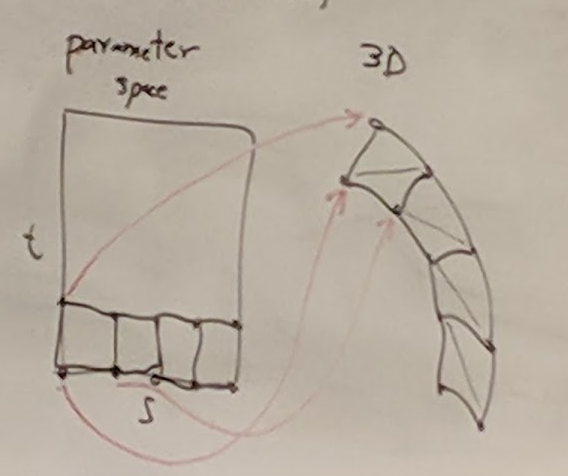 parameter
space
3D
t
s